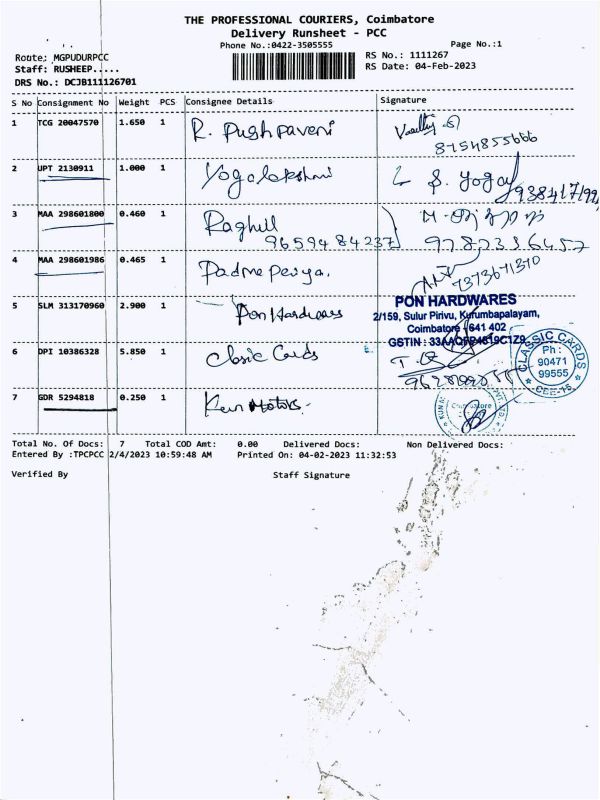 THE PROFESSIONAL COURIERS, Coimbatore
Delivery Runsheet - PCC
Phone No.:0422-3505555 Page No.:1
Route: MGPUDURPCC RS No.: 1111267
Staff: RUSHEEP..... RS Date: 04-Feb-2023
DRS No.: DCJB111126701
S No Consignment No Weight PCS Consignee Details Signature
1 TCG 20047570 1.650 1 R. Pushpaveni
8754855666
2 UPT 2130911 1.000 1 Yogalakshmi S. Yoga
3 MAA 298601800 0.460 1 Raghul
9659484237 9787336457
4 MAA 298601986 0.465 1 Padmapriya. 7373671370
5 SLM 313170960 2.900 1 Pon Hardwares PON HARDWARES
2/159, Sulur Pirivu, Kurumbapalayam,
Coimbatore - 641 402
GSTIN :
6 DPI 10386328 5.850 1 Classic Cards
CLASSIC CARDS
Ph :
90471
99555
CBE-18
7 GDR 5294818 0.250 1 Kun Motors.
Coimbatore
Total No. Of Docs: 7 Total COD Amt: 0.00 Delivered Docs: Non Delivered Docs:
Entered By :TPCPCC 2/4/2023 10:59:48 AM Printed On: 04-02-2023 11:32:53
Verified By Staff Signature